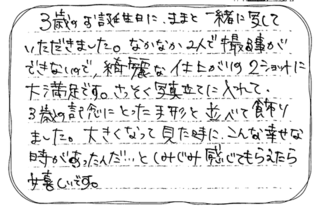 3歳のお誕生日に、ままと一緒に写して
いただきました。なかなか2人で撮る事が
できないので、綺麗な仕上がりの2ショットに
大満足です。さっそく写真立てに入れて、
3歳の記念にとった手形と並べて飾り
ました。大きくなって見た時に、こんな幸せな
時があったんだ…としみじみ感じてもらえたら
嬉しいです。